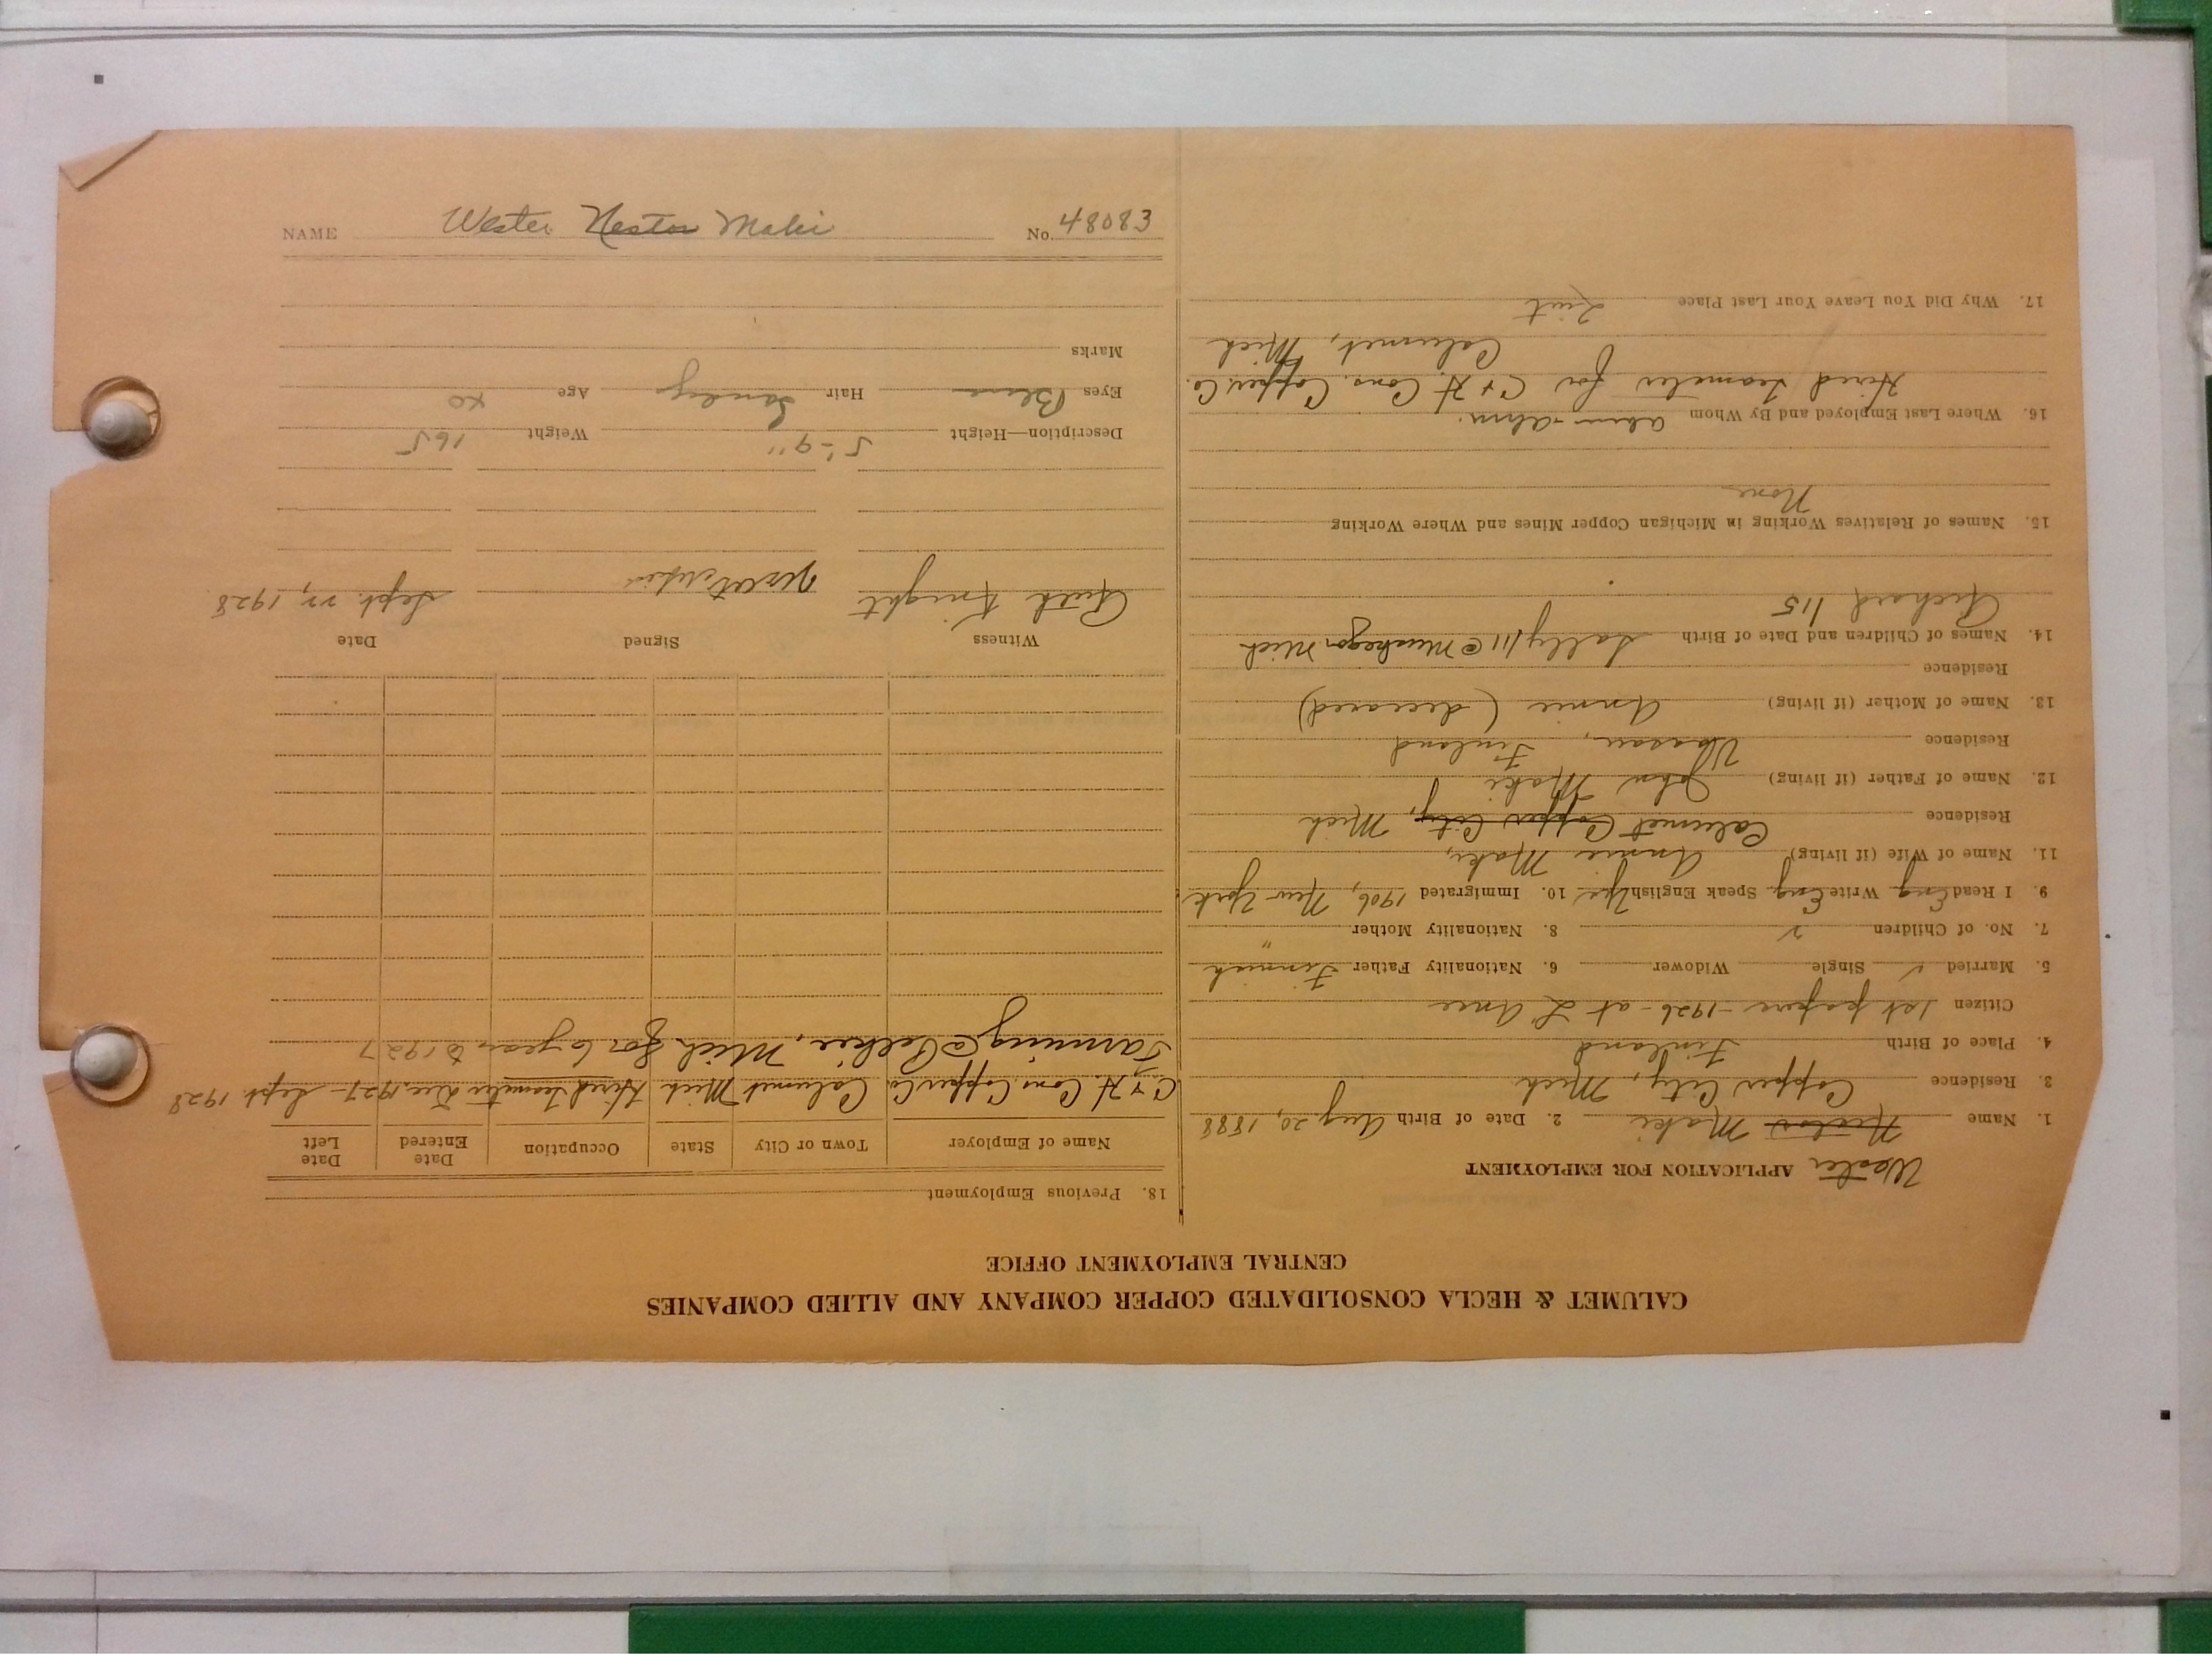 NAME Wester Nestor Maki No. 48083
CALUMET & HECLA CONSOLIDATED COPPER COMPANY AND ALLIED COMPANIES
CENTRAL EMPLOYMENT OFFICE
Wester APPLICATION FOR EMPLOYMENT
1. Name Nestor Maki 2. Date of Birth Aug 20, 1888
3. Residence Copper City, Mich
4. Place of Birth Finland
Citizen 1st papers - 1926 - at L'Anse
5. Married ✓ Single Widower 6. Nationality Father Finnish
7. No. of Children 2 8. Nationality Mother "
9. I Read Eng Write Eng Speak English Yes 10. Immigrated 1906, New York
11. Name of Wife (if living) Annie Maki,
Residence Calumet Copper City, Mich
12. Name of Father (if living) John Maki
Residence Vaasan, Finland
13. Name of Mother (if living) Annie (deceased)
Residence
14. Names of Children and Date of Birth Sally /11 @ Muskegon Mich
Richard /15
15. Names of Relatives Working in Michigan Copper Mines and Where Working
None
16. Where Last Employed and By Whom
Hired teamster for C & H. Cons. Copper Co.
Calumet, Mich
17. Why Did You Leave Your Last Place Quit
18. Previous Employment
Name of Employer Town or City State Occupation Date Entered Date Left
C & H. Cons Copper Co Calumet Mich Hired teamster Dec. 1927 - Sept 1928
Farming @ Pelkie, Mich for 6 years to 1927
Witness Signed Date
Ruth Knight Sept. 22, 1928
Description—Height 5'-9" Weight 165
Eyes Blue Hair Sandy Age 40
Marks